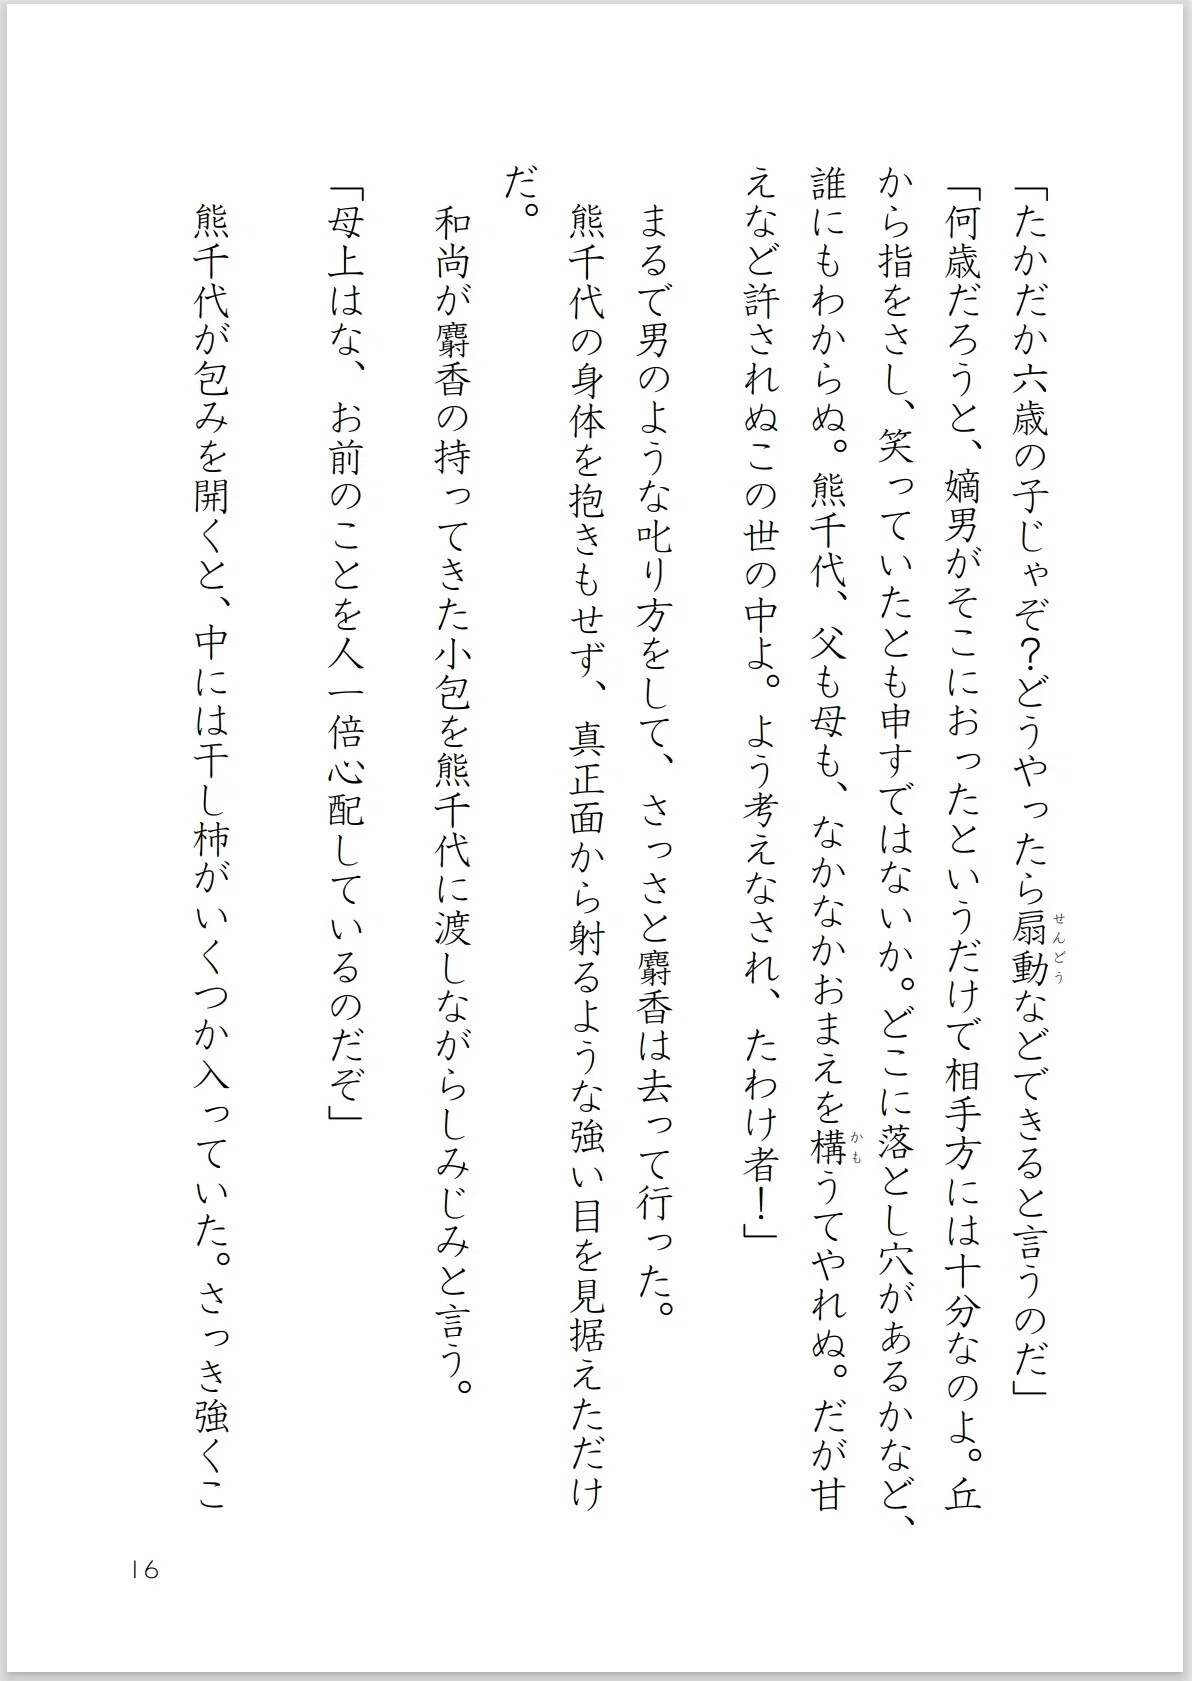 「たかだか六歳の子じゃぞ？どうやったら扇動などできると言うのだ」
せんどう
「何歳だろうと、嫡男がそこにおったというだけで相手方には十分なのよ。丘
から指をさし、笑っていたとも申すではないか。どこに落とし穴があるかなど、
誰にもわからぬ。熊千代、父も母も、なかなかおまえを構うてやれぬ。だが甘
かも
えなど許されぬこの世の中よ。よう考えなされ、たわけ者！」
まるで男のような叱り方をして、さっさと麝香は去って行った。
熊千代の身体を抱きもせず、真正面から射るような強い目を見据えただけ
だ。
和尚が麝香の持ってきた小包を熊千代に渡しながらしみじみと言う。
「母上はな、お前のことを人一倍心配しているのだぞ」
熊千代が包みを開くと、中には干し柿がいくつか入っていた。さっき強くこ
16